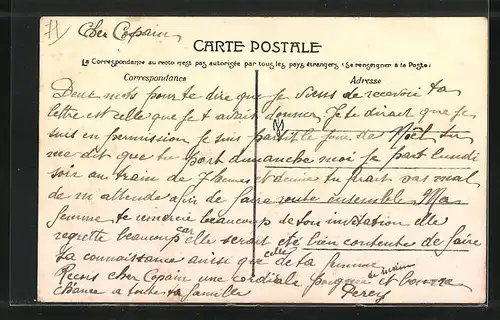 71
Cher Copain
CARTE POSTALE
La Correspondance au recto n'est pas autorisée par tous les pays étrangers (Se renseigner à la Poste)
Correspondance
Adresse
Deux mots pour te dire que je viens de recevoir ta
lettre et celle que je t avait donner. Je te dirait que je
suis en permission je suis partit le jour de Noël tu
me dit que tu part dimanche moi je part lundi
soir au train de 7 heures et demie tu frait pas mal
de m attendre afin de faire route ensemble Ma
femme te remercie beaucoup de ton invitation elle
regrette beaucoup car elle serait été bien contente de faire
la connaissance ainsi que celle de ta femme
Reçus cher Copain une cordiale poignée de main et bonne
Chance a toute ta famille
Percy